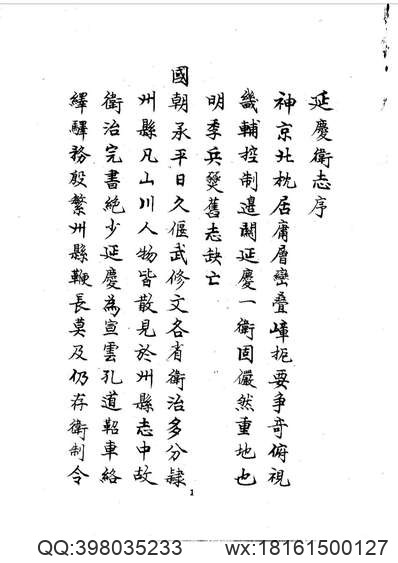 延慶衛志序
神京北枕居庸層巒疊嶂扼要爭奇俯視
畿輔控制邊關延慶一衛固儼然重地也
明季兵燹舊志缺亡
國朝承平日久偃武修文各省衛治多分隸
州縣凡山川人物皆散見於州縣志中故
衛治完書絶少延慶為宣雲孔道軺車絡
繹驛務殷繁州縣鞭長莫及仍存衛制令
1
QQ:398035233 wx:18161500127